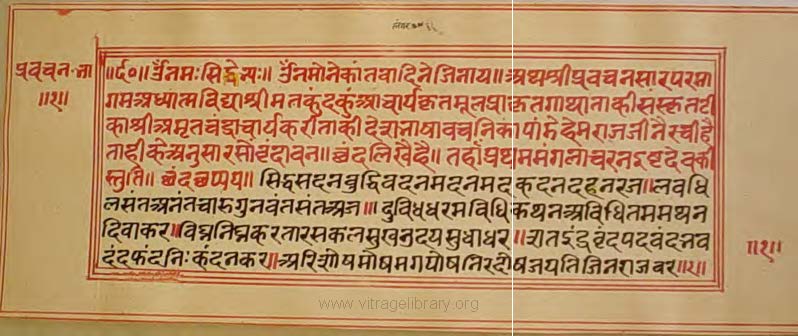 प्रवचन॰ भा
॥१॥
॥र्द०॥ ॐनमःसिद्धेभ्यः॥ ॐनमोनेकांतवादिनेजिनाय॥अथश्रीप्रवचनसारपरमा
गमअध्यात्मविद्याश्रीमतकुंदकुंआचार्यकृतमूलप्राकृतगाथाताकीसंस्कृतटी
काश्रीअमृतचंद्राचार्यकरीताकीदेशभाषावचनिकापांडेहेमराजजीनैरचीहै
ताहीकेअनुसारसोंवृंदावन॥छंदलिखैहै॥ तहांप्रथममंगलाचरनइष्टदेवकी
स्तुति॥ छंदछप्पय॥ सिद्धसदनबुद्धिवदनमदनमदकदनदहनरज॥लवधि
लसंतअनंतचारुगुनवंतसंतअज॥ दुविधधरमविधिकथनअविधितममथन
दिवाकर॥विघ्ननिघ्नकरतारसकलसुखउदयसुधाधर॥शतइंद्रवृंदपदवंदभव
दंदफंदनिःकंदनकर॥अरिशोषमोषमगपोषनिरदोषजयतिजिनराजवर॥१॥
॥१॥
www.vitragelibrary.org